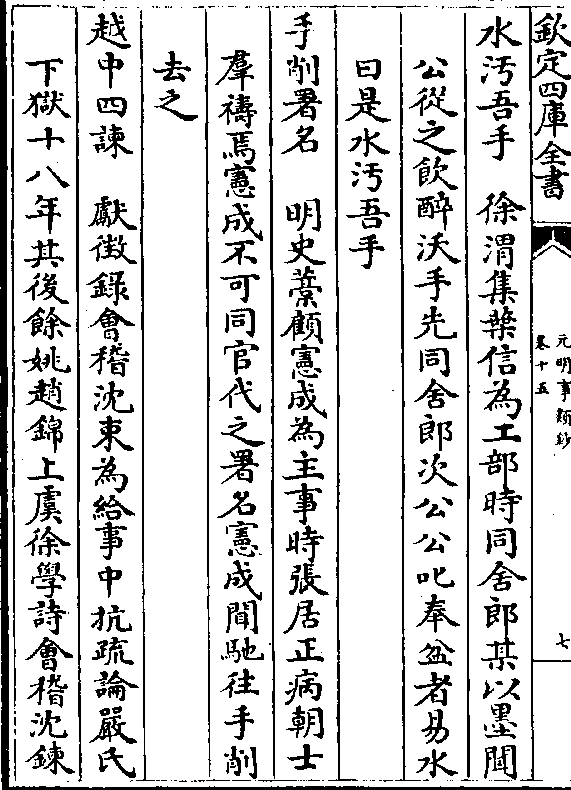 欽定四庫全書
元明事類鈔
卷十五
七
水汚吾手　徐渭集葉信為工部時同舍郎某以墨聞
公從之飲醉沃手先同舍郎次公公叱奉盆者易水
曰是水汚吾手
手削署名　明史藳顧憲成為主事時張居正病朝士
羣禱焉憲成不可同官代之署名憲成聞馳往手削
去之
越中四諫　獻徴錄會稽沈束為給事中抗疏論嚴氏
下獄十八年其後餘姚趙錦上虞徐學詩會稽沈鍊